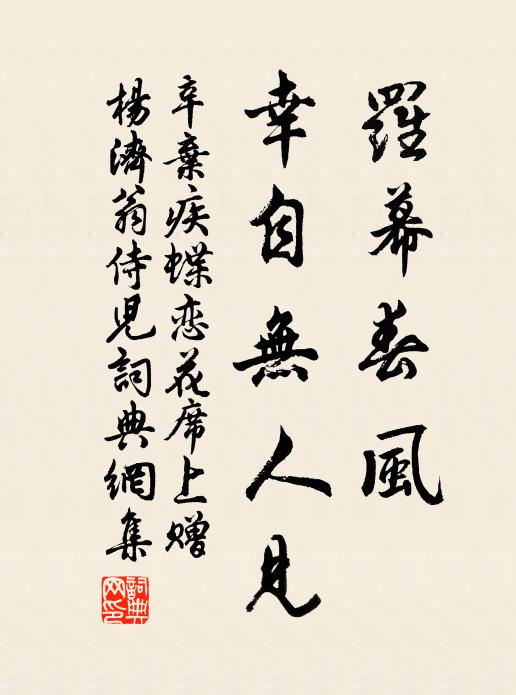 羅幕春風
幸自無人見
辛棄疾蝶恋花席上赠
楊濟翁侍児詞典網集
詞典
网印